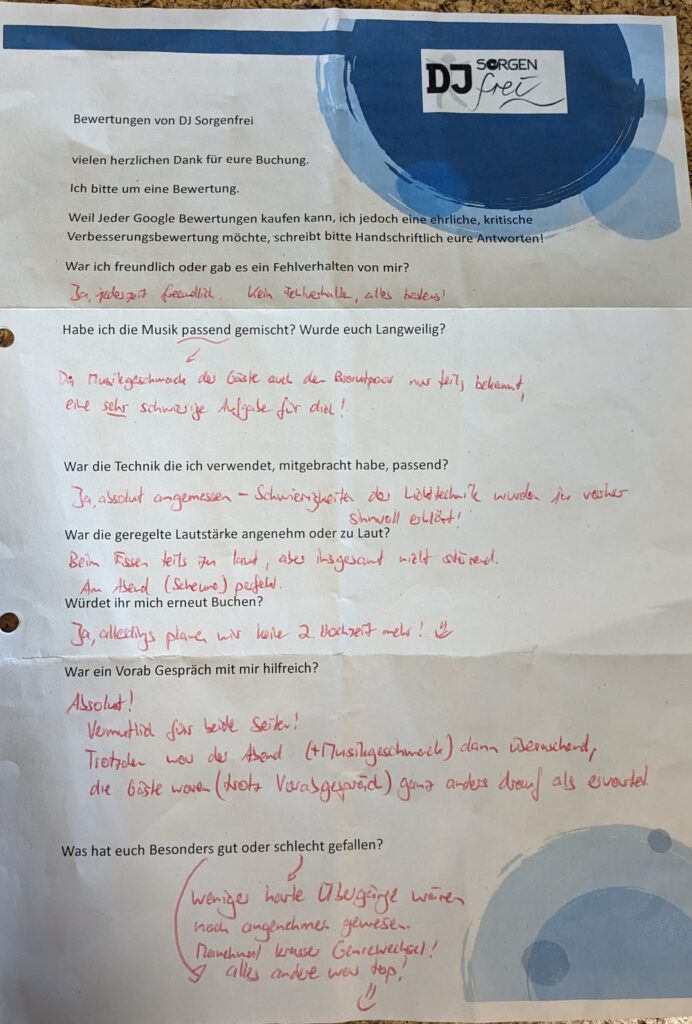 DJ SORGEN
frei
Bewertungen von DJ Sorgenfrei
vielen herzlichen Dank für eure Buchung.
Ich bitte um eine Bewertung.
Weil Jeder Google Bewertungen kaufen kann, ich jedoch eine ehrliche, kritische
Verbesserungsbewertung möchte, schreibt bitte Handschriftlich eure Antworten!
War ich freundlich oder gab es ein Fehlverhalten von mir?
Ja, jederzeit freundlich. Kein Fehlverhalten, alles bestens!
Habe ich die Musik passend gemischt? Wurde euch Langweilig?
Musikgeschmack der Gäste auch dem Brautpaar nur teils bekannt,
eine sehr schwierige Aufgabe für dich!
War die Technik die ich verwendet, mitgebracht habe, passend?
Ja, absolut angemessen – Schwierigkeiten der Lichttechnik wurden ja vorher
sinnvoll erklärt!
War die geregelte Lautstärke angenehm oder zu Laut?
Beim Essen teils zu laut, aber insgesamt nicht störend.
Am Abend (Scheune) perfekt.
Würdet ihr mich erneut Buchen?
Ja, allerdings planen wir keine 2. Hochzeit mehr!
War ein Vorab Gespräch mit mir hilfreich?
Absolut!
Vermutlich für beide Seiten!
Trotzdem war der Abend (+Musikgeschmack) dann überraschend,
die Gäste waren (trotz Vorabgespräch) ganz anders drauf als erwartet
Was hat euch Besonders gut oder schlecht gefallen?
weniger harte Übergänge wären
noch angenehmer gewesen.
Manchmal krasser Genrewechsel!
alles andere war top!